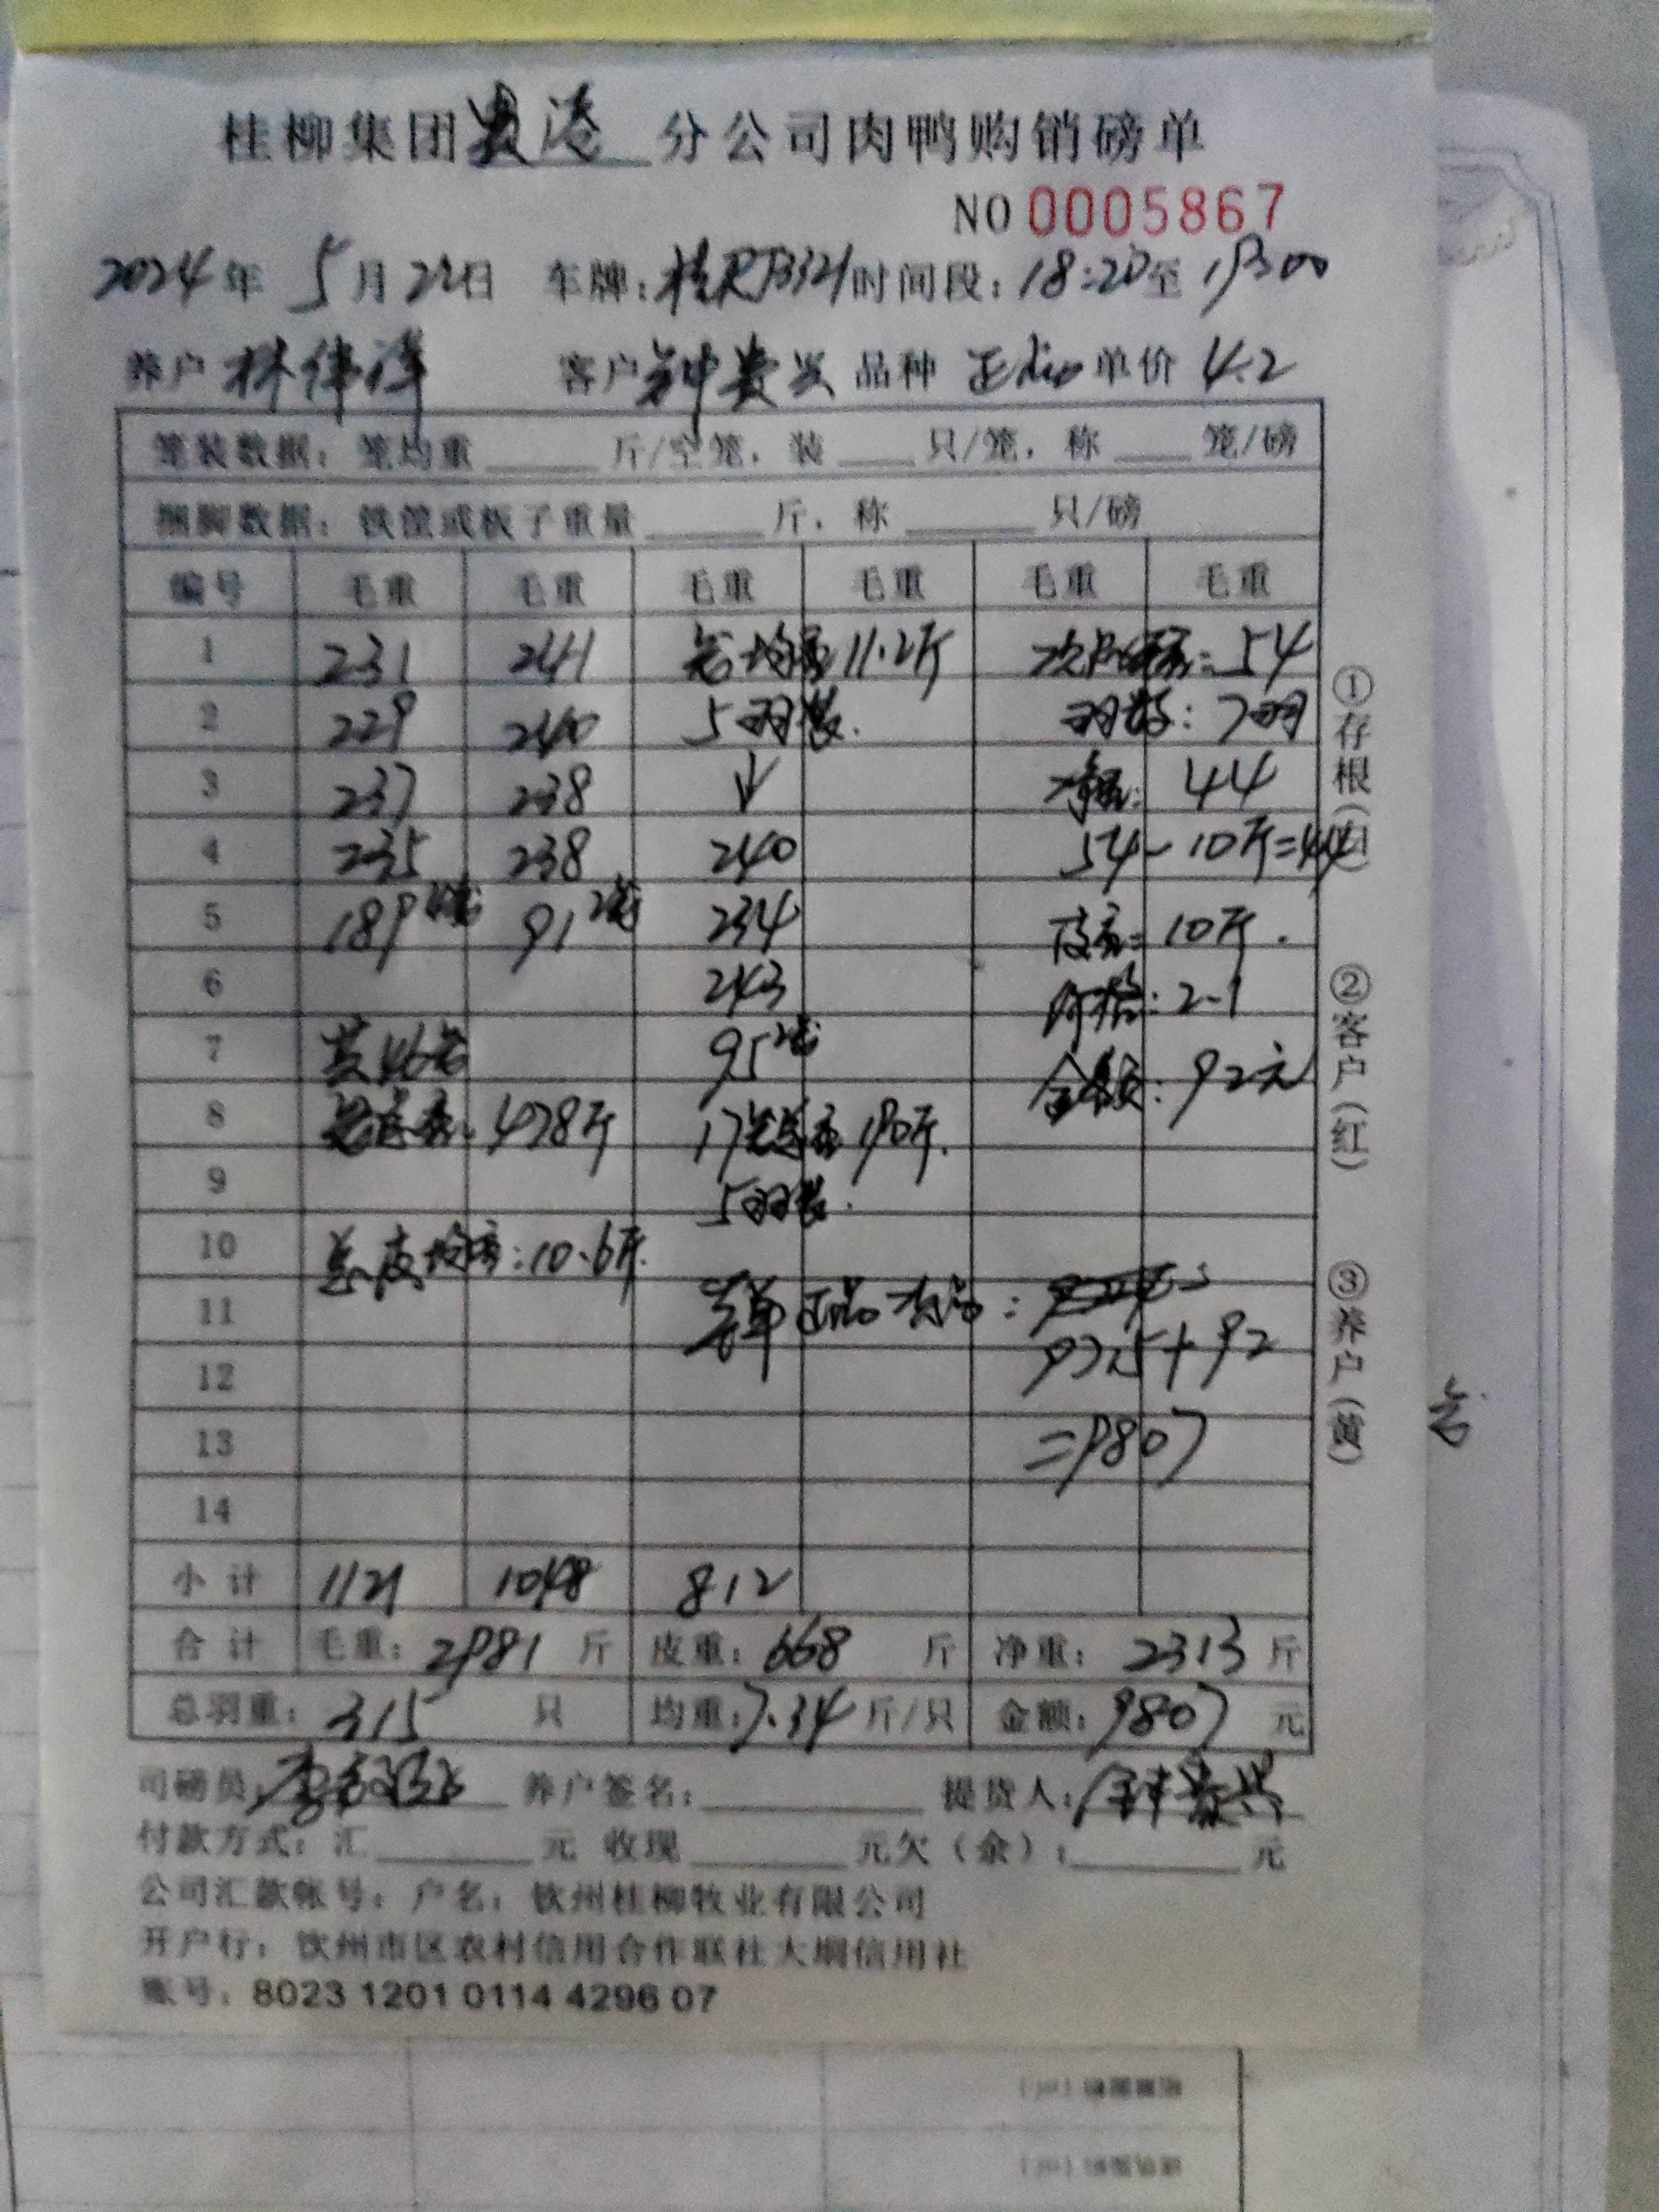 桂柳集团贵港分公司肉鸭购销磅单
NO 0005867
2024年 5月22日 车牌:桂R 时间段:18:20至19:00
养户 林伟洋 客户 钟 兴 品种 正品 单价 4.2
笼装数据:笼均重 斤/空笼,装 只/笼,称 笼/磅
捆脚数据:铁筐或板子重量 斤,称 只/磅
编号 毛重 毛重 毛重 毛重 毛重 毛重
1 231 241 笼均重11.2斤 54
2 229 240 5羽装. 羽数:7羽
3 237 238 ↓ 净重: 44
4 235 238 240 54-10斤=44
5 189 4笼 91 2笼 234 皮重:10斤.
6 243 价格:2.1
7 共46笼 95 2笼 金额:92元
8 笼总重:478斤 17笼总重190斤.
9 5羽装.
10 总皮均重:10.6斤.
11 正品 次品:
12 9715+92
13 =9807
14
小计 1121 1048 812
合计 毛重:2981斤 皮重:668斤 净重:2313斤
总羽重:315只 均重:7.34斤/只 金额:9807元
司磅员: 养户签名: 提货人:钟 兴
付款方式:汇 元 收现 元欠(余): 元
公司汇款帐号:户名:钦州桂柳牧业有限公司
开户行:钦州市区农村信用合作联社大垌信用社
账号:8023 1201 0114 4296 07
①存根(白)
②客户(红)
③养户(黄)
笼